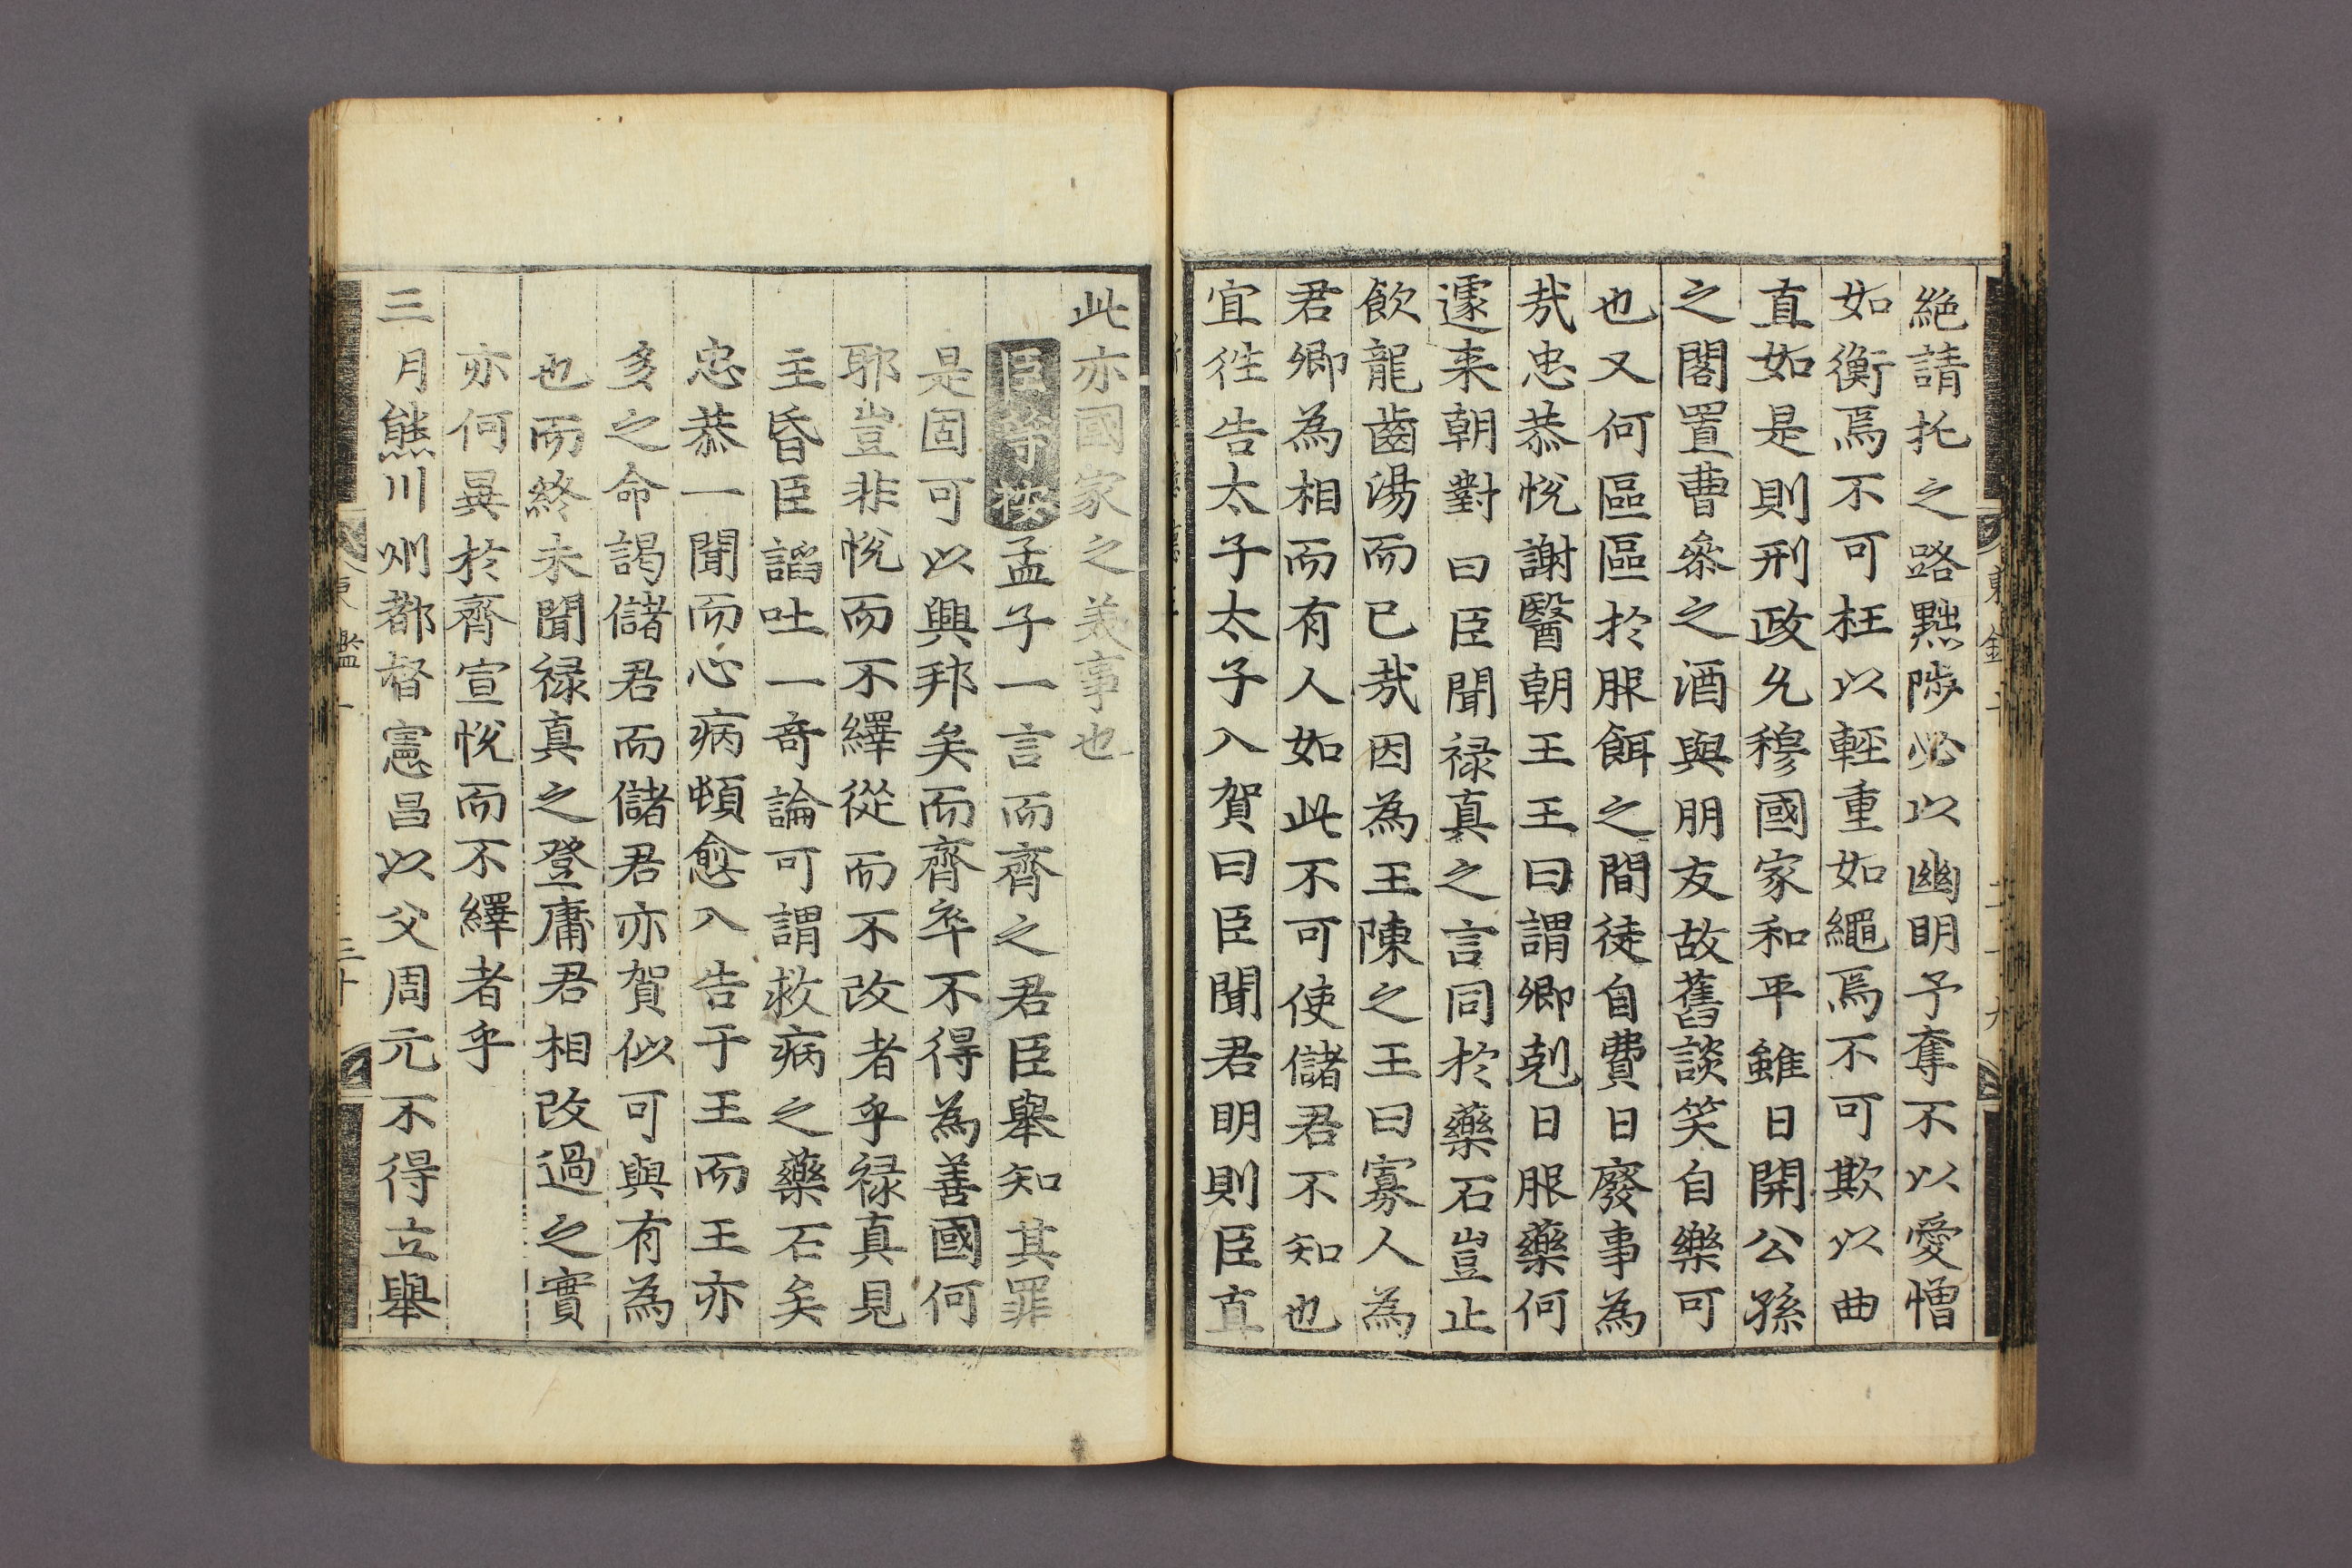 絶請托之路黜陟必以幽明予奪不以愛憎
如衡焉不可枉以輕重如繩焉不可欺以曲
直如是則刑政允穆國家和平雖日開公孫
之閤置曹叅之酒與朋友故舊談笑自樂可
也又何區區於服餌之間徒自費日廢事為
㢤忠恭悅謝醫朝王王曰謂卿剋日服藥何
遽来朝對曰臣聞禄真之言同於藥石豈止
飮龍齒湯而已㢤因為王陳之王曰寡人為
君卿為相而有人如此不可使儲君不知也
宜徃告太子太子入賀曰臣聞君明則臣直
此亦國家之美事也
臣等按孟子一言而齊之君臣擧知其罪
是固可以興邦矣而齊卒不得為善國何
耶豈非悅而不繹從而不改者乎禄真見
主昏臣謟吐一奇論可謂救病之藥石矣
忠恭一聞而心病頓愈入告于王而王亦
多之命謁儲君而儲君亦賀似可與有為
也而終未聞禄真之登庸君相改過之實
亦何異於齊宣悅而不繹者乎
三月熊川州都督憲昌以父周元不得立擧